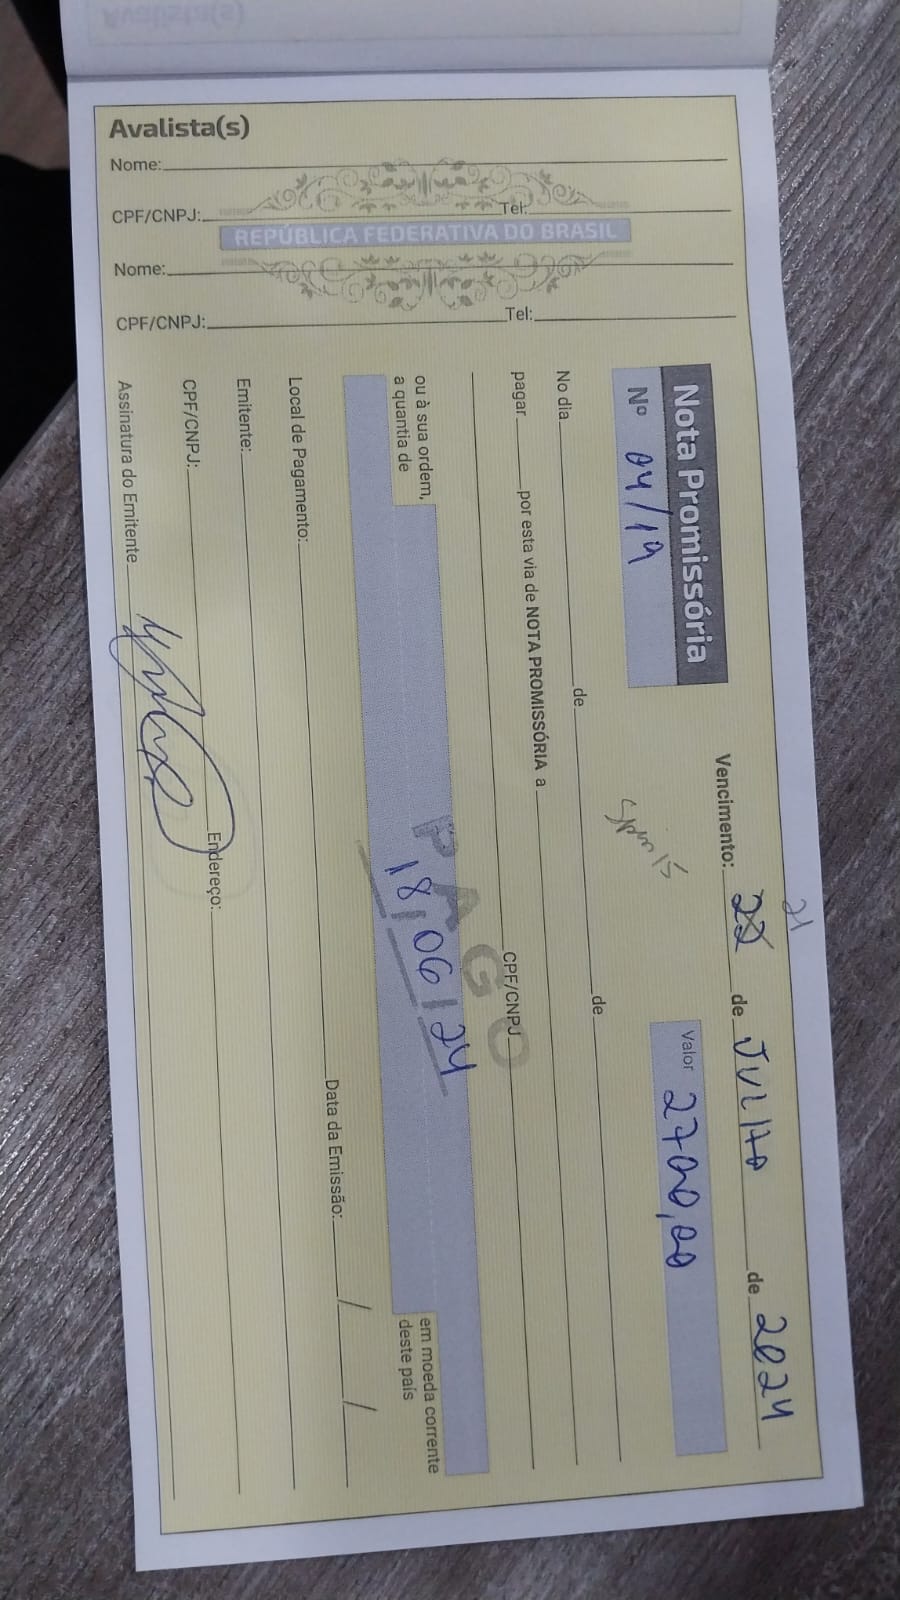 Avalista(s)
Nome:
CPF/CNPJ: Tel:
REPÚBLICA FEDERATIVA DO BRASIL
Nome:
CPF/CNPJ: Tel:
21
Nota Promissória Vencimento: 22 de JULHO de 2024
Nº 04/19 Valor 2700,00
No dia de de
pagar por esta via de NOTA PROMISSÓRIA a
CPF/CNPJ
ou à sua ordem,
a quantia de
PAGO
18/06/24
em moeda corrente
deste país
Local de Pagamento: Data da Emissão: / /
Emitente:
CPF/CNPJ: Endereço:
Assinatura do Emitente